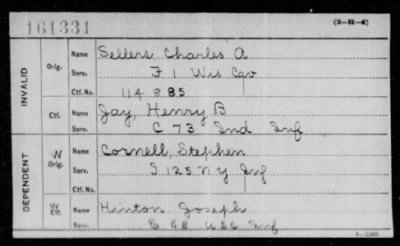 161331
(3-H-4)
INVALID
Orig.
Name Sellers Charles A
Serv. F 1 Wis Cav
Ctf. No. 114 885
Ctf.
Name Jay, Henry B
Serv. C 73 Ind Inf
DEPENDENT
W Orig.
Name Cornell, Stephen
Serv. I 125 N Y Inf
Ctf. No.
W Ctf.
Name Hinton Joseph
Serv. USC Inf